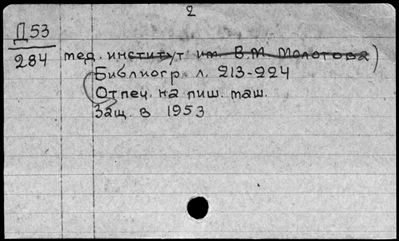 2
Д53
284
мед. институт им. В.М. Молотова)
Библиогр. л. 213-224
Отпеч. на пиш. маш.
Защ. в 1953